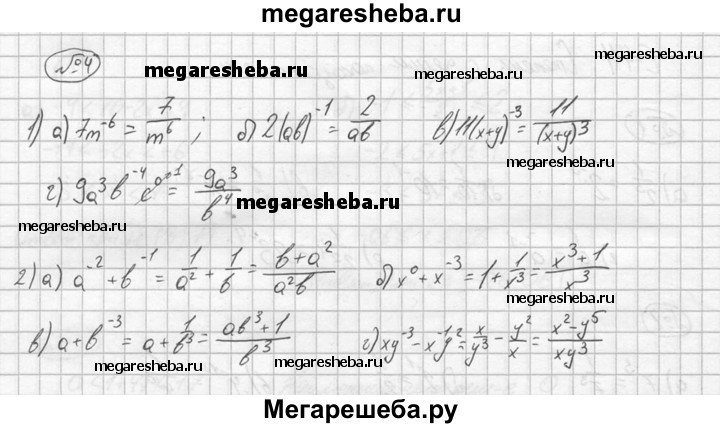 megaresheba.ru
№4
megaresheba.ru megaresheba.ru
1) а) 7m⁻⁶ = 7/m⁶ ; б) 2(ab)⁻¹ = 2/ab в) 11(x+y)⁻³ = 11/(x+y)³
megaresheba.ru
г) 9a³b⁻⁴c⁰ = 9a³/b⁴
megaresheba.ru megaresheba.ru
2) а) a⁻² + b⁻¹ = 1/a² + 1/b = (b+a²)/a²b б) x⁰ + x⁻³ = 1 + 1/x³ = (x³+1)/x³
megaresheba.ru
в) a + b⁻³ = a + 1/b³ = (ab³+1)/b³ г) xy⁻³ - x⁻¹y² = x/y³ - y²/x = (x²-y⁵)/xy³
megaresheba.ru megaresheba.ru
Мегарешеба.ру